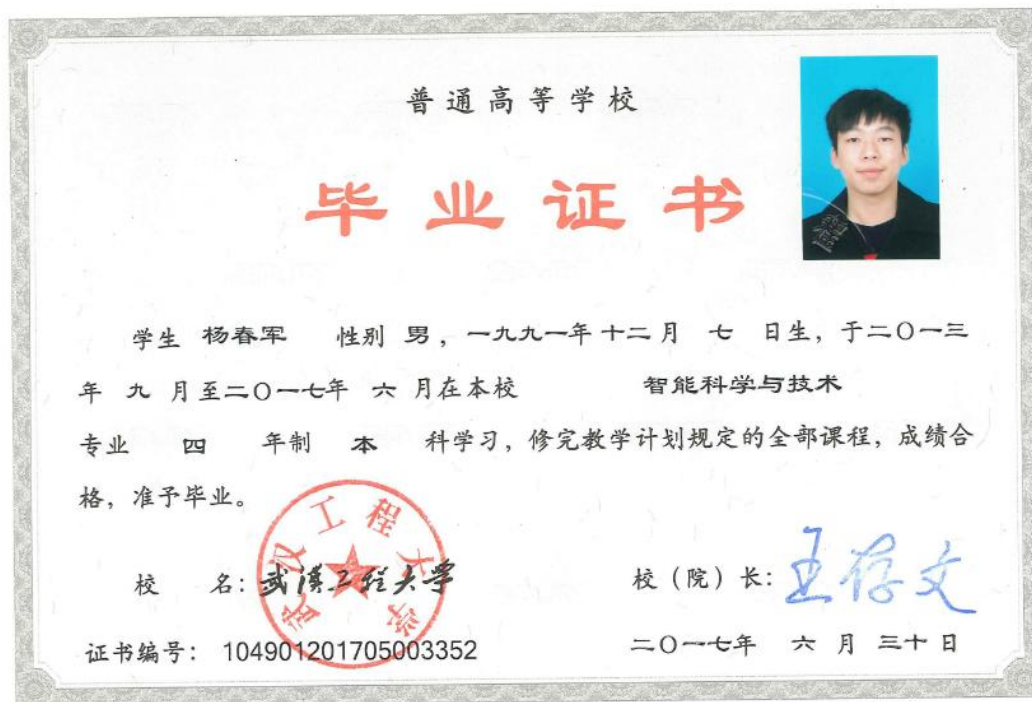 普通高等学校
毕业证书
学生 杨春军 性别 男，一九九一年十二月 七 日生，于二〇一三
年 九 月至二〇一七年 六 月在本校 智能科学与技术
专业 四 年制 本 科学习，修完教学计划规定的全部课程，成绩合
格，准予毕业。
武汉工程大学
校 名：武汉工程大学
校（院）长：王存文
证书编号： 104901201705003352
二〇一七年 六 月 三十 日